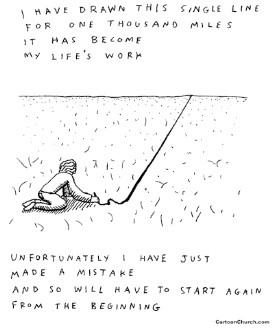 I HAVE DRAWN THIS SINGLE LINE
FOR ONE THOUSAND MILES
IT HAS BECOME
MY LIFE'S WORK
UNFORTUNATELY I HAVE JUST
MADE A MISTAKE
AND SO WILL HAVE TO START AGAIN
FROM THE BEGINNING
CartoonChurch.com